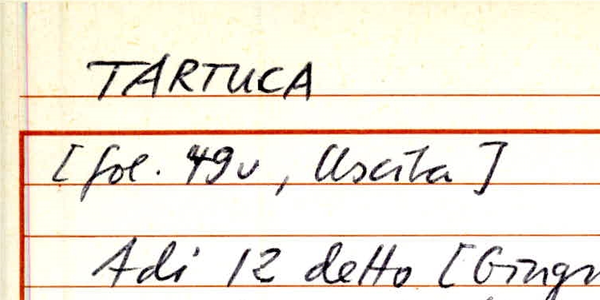 TARTUCA
[fol. 49v, Uscita]
Adi 12 detto [Giugn